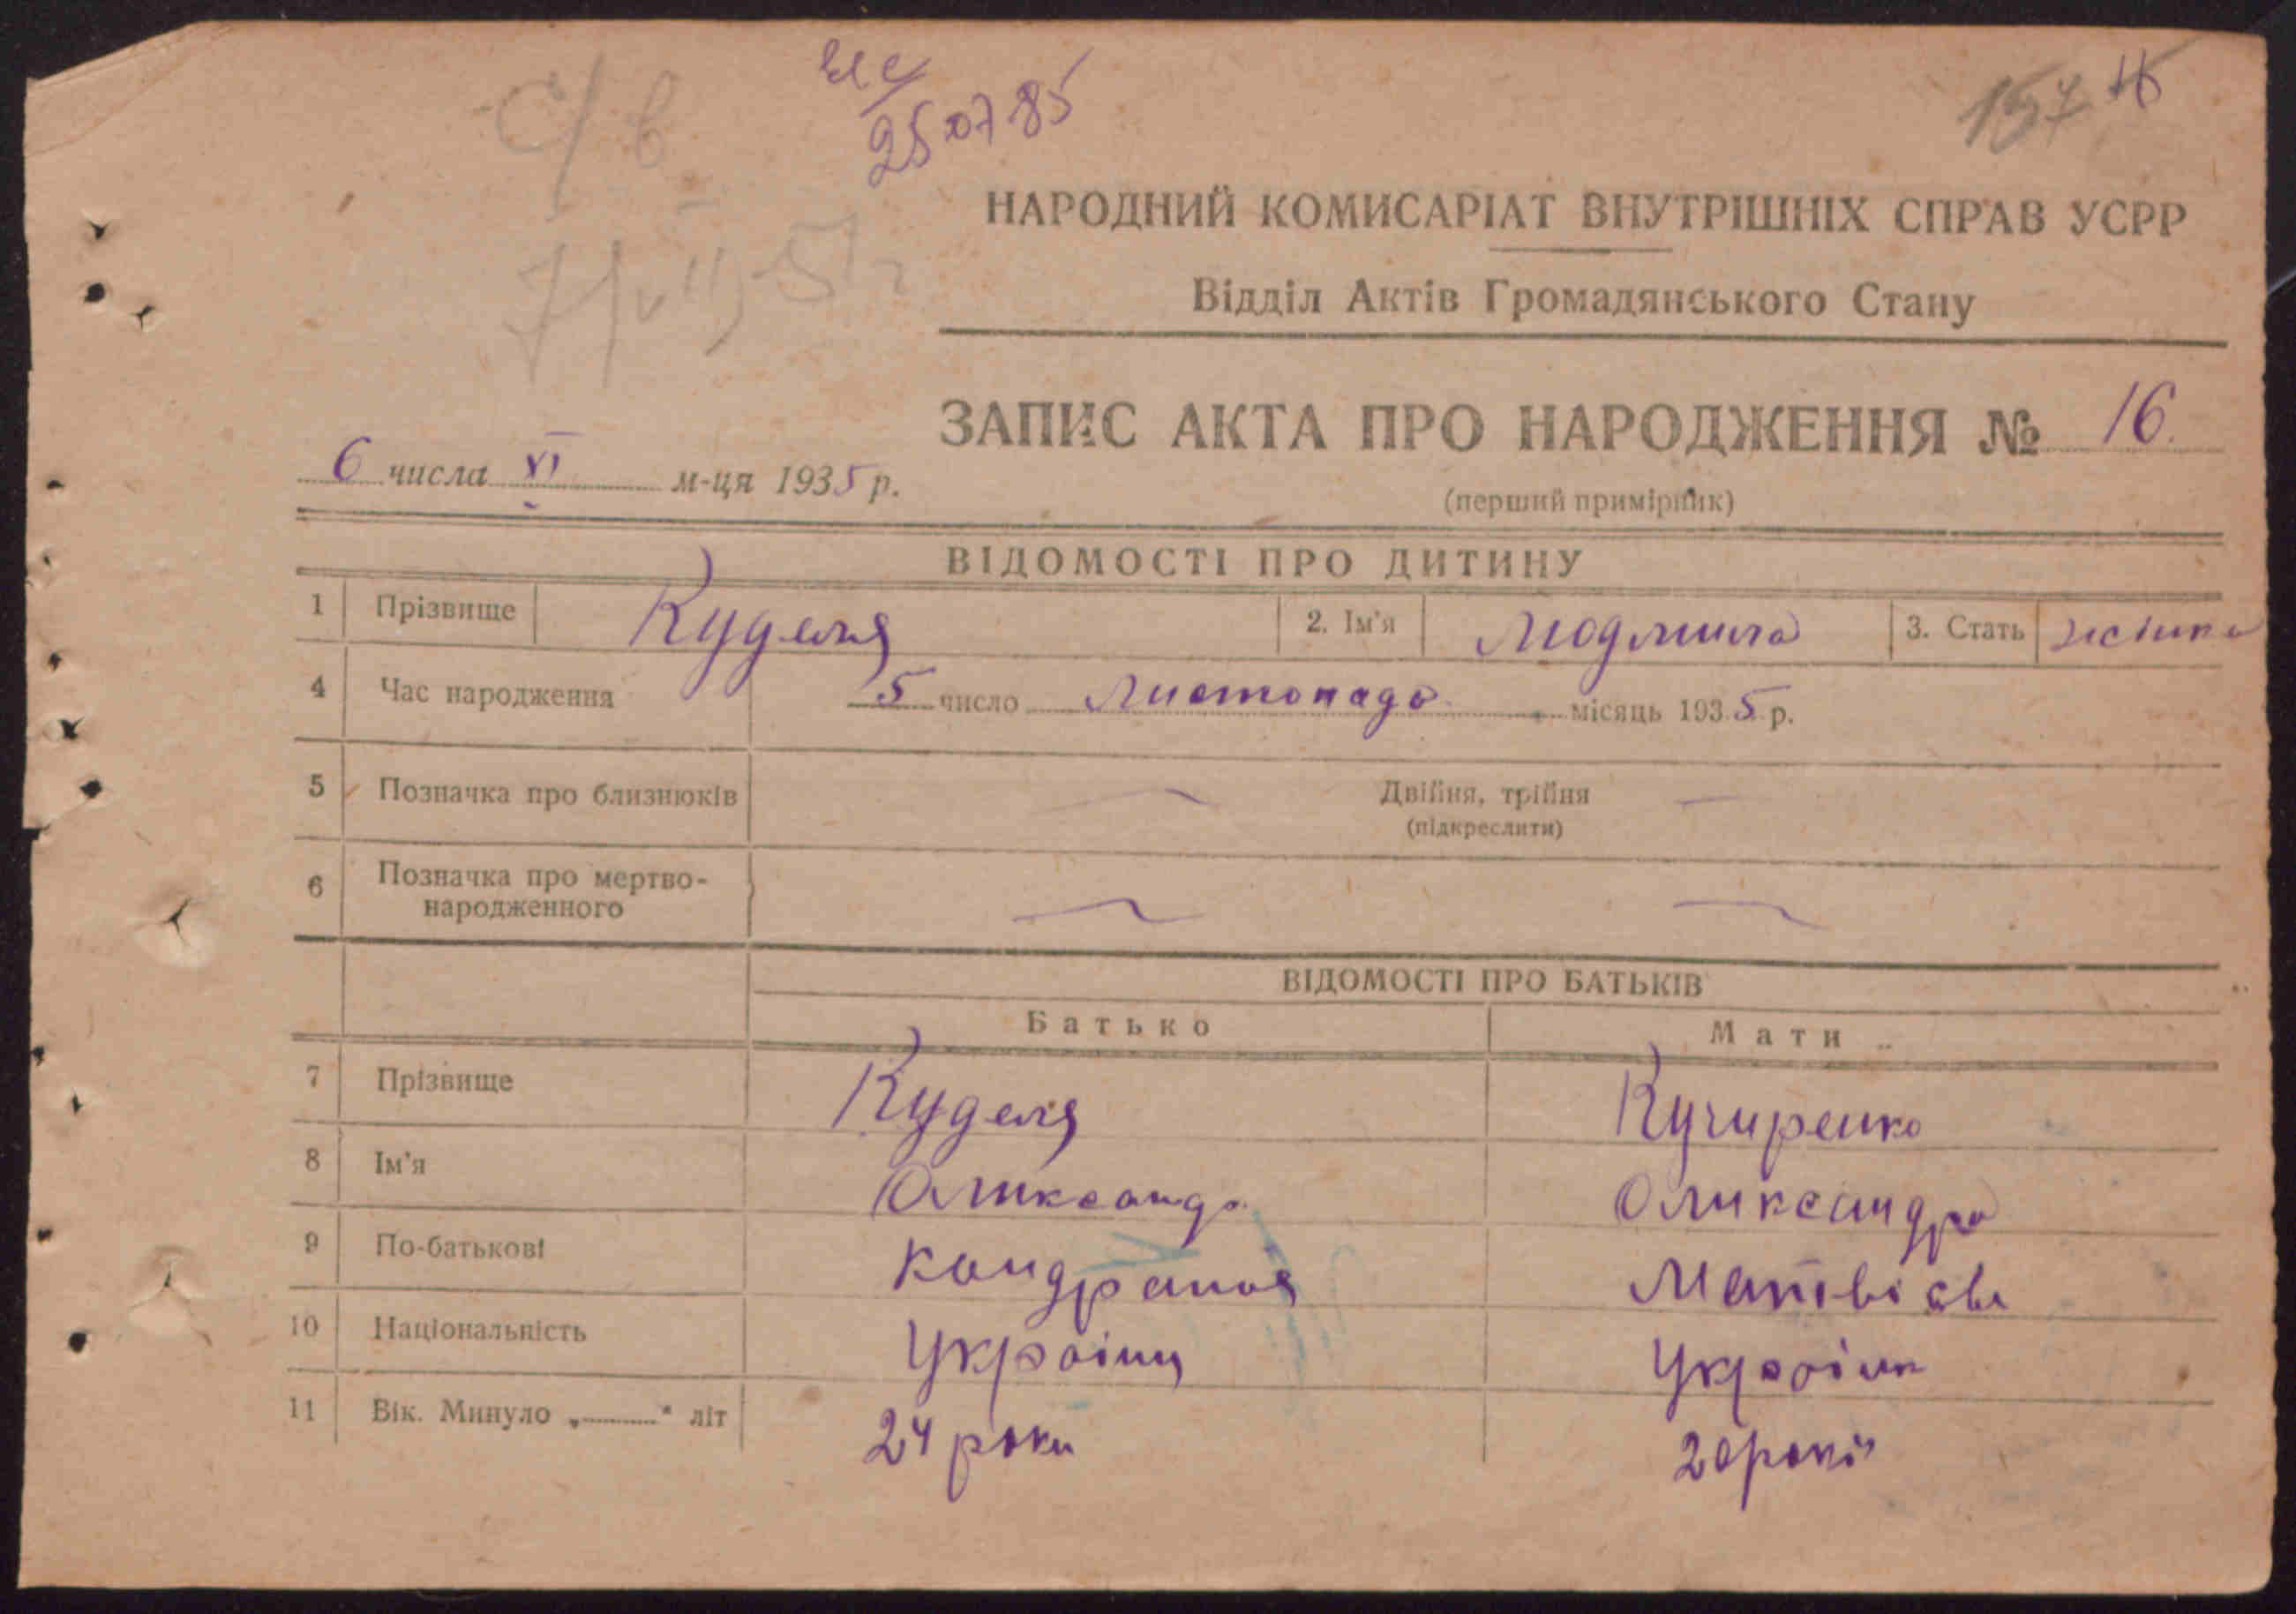 25 07 85
157
НАРОДНИЙ КОМИСАРІАТ ВНУТРІШНІХ СПРАВ УСРР
Відділ Актів Громадянського Стану
ЗАПИС АКТА ПРО НАРОДЖЕННЯ № 16.
6 числа XI м-ця 1935 р.
(перший примірник)
ВІДОМОСТІ ПРО ДИТИНУ
1 Прізвище Куделя 2. Ім'я Людмила 3. Стать жіноча
4 Час народження 5 число Листопада місяць 1935 р.
5 Позначка про близнюків Двійня, трійня
(підкреслити)
6 Позначка про мертво-
народженного
ВІДОМОСТІ ПРО БАТЬКІВ
Батько Мати
7 Прізвище Куделя Кучиренко
8 Ім'я Оликсандр Оликсандра
9 По-батькові Кондратов Матвієва
10 Національність Україниц Україінка
11 Вік. Минуло „ “ літ 24 роки 20 років